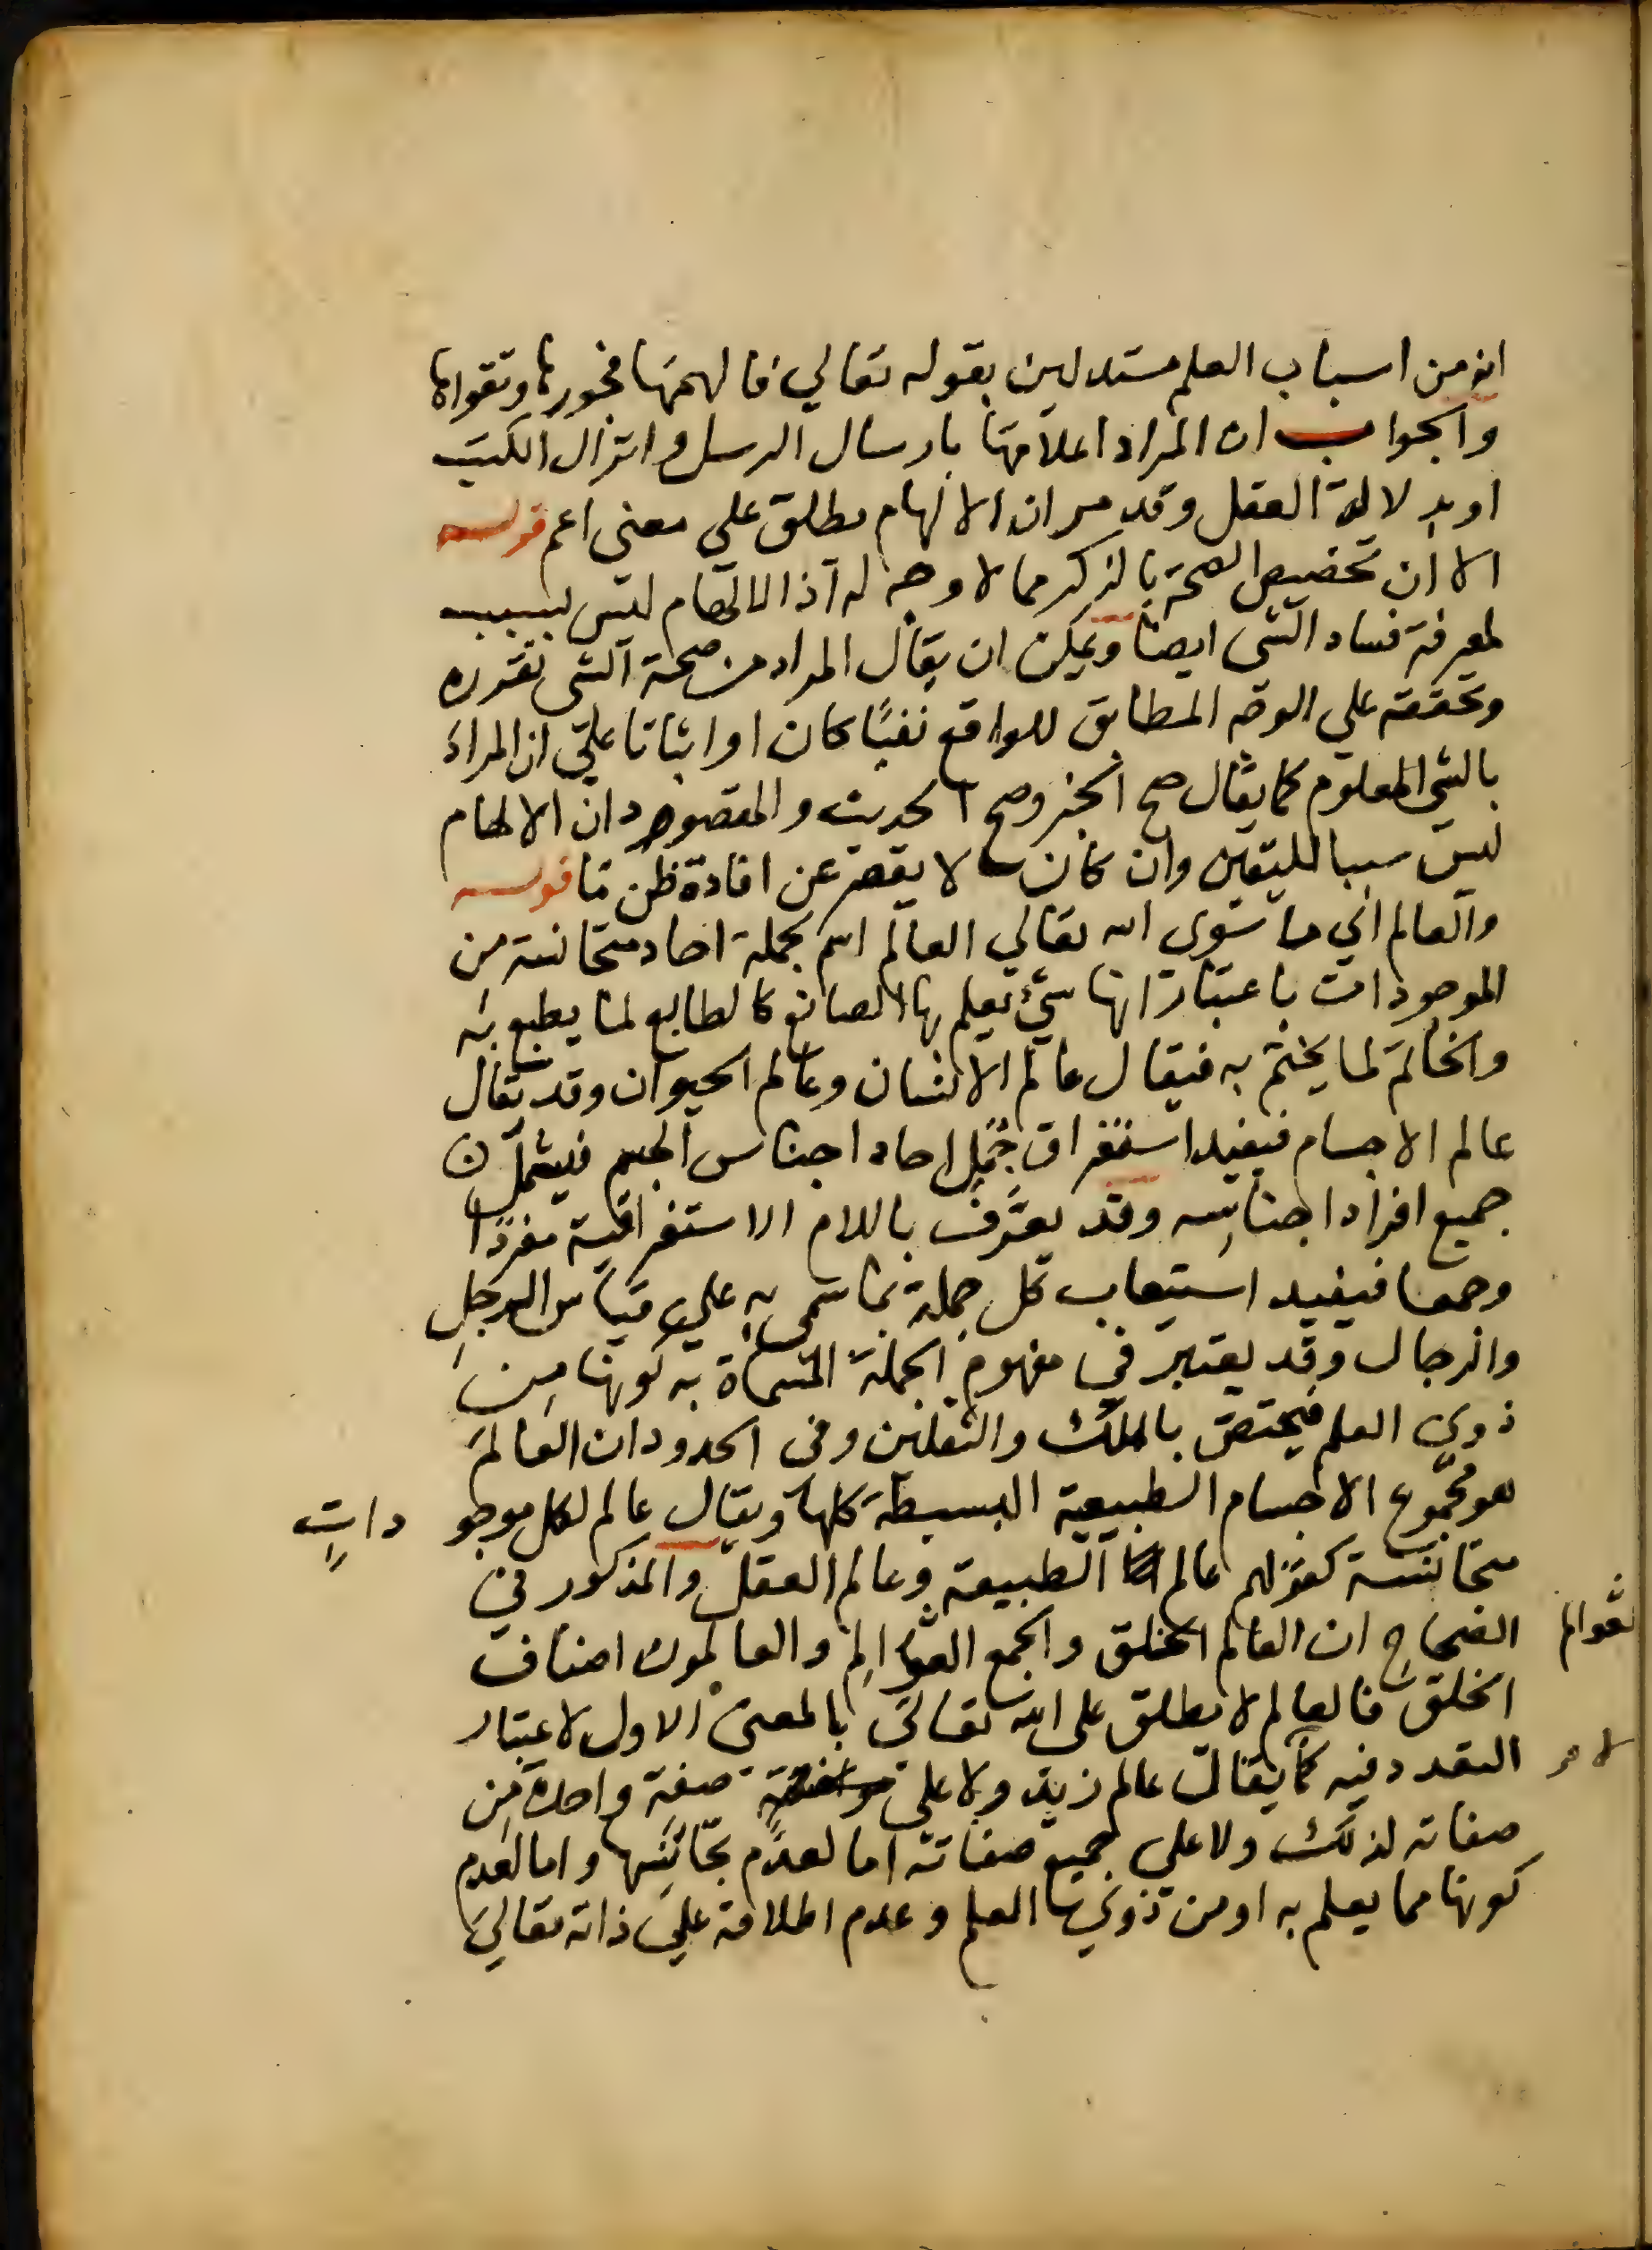 انه من اسباب العلم مستدلين بقوله تعالي فالهمها فجورها وتقواها
والجواب ان المراد اعلامها بارسال الرسل وانزال الكتب
او بدلالة العقل وقد مر ان الالهام يطلق علي معني اعم قوله
الا ان تخصيص الصحة بالذكر مما لا وجه له اذ الالهام ليس بسبب
لمعرفة فساد الشي ايضا ويمكن ان يقال المراد من صحة الشي تقرره
وتحققه علي الوجه المطابق للواقع نفيًا كان او اثباتا علي ان المراد
بالشي المعلوم كما يقال صح الخبر وصح الحديث والمقصود ان الالهام
ليس سببا لليقين وان كان لا يقصر عن افادة ظن ما قوله
والعالم اي ما سوي الله تعالي العالم اسم لجملة احاد متجانسة من
الموجودات باعتبار انها شيء يعلم بها الصانع كالطابع لما يطبع به
والخاتم لما يختم به فيقال عالم الانسان وعالم الحيوان وقد يقال
عالم الاجسام فيفيد استغراق جُمَل احاد اجناس الجسم فيشمل
جميع افراد اجناسه وقد يعرَّف باللام الاستغراقية مفردًا
وجمعا فيفيد استيعاب كل جملة مما سمي به علي قياس الرجل
والرجال وقد يعتبر في مفهوم الجملة المسماة به كونها من
ذوي العلم فيختص بالملك والثقلين وفي الحدود ان العالم
هو مجموع الاجسام الطبيعية البسيطة كلها ويقال عالم لكل موجو دات
متجانسة كقولهم عالم الطبيعة وعالم العقل والمذكور في
الصحاح ان العالم الخلق والجمع العوالم والعالمون اصناف
العوالم
الخلق فالعالم لا يطلق علي الله تعالي بالمعني الاول لاعتبار
التعدد فيه كما يقال عالم زيد ولا علي صفة واحدة من
صفاته لذلك ولا علي جميع صفاته اما لعدم تجانسها واما لعدم
كونها مما يعلم به او من ذوي العلم وعدم اطلاقه علي ذاته تعالي